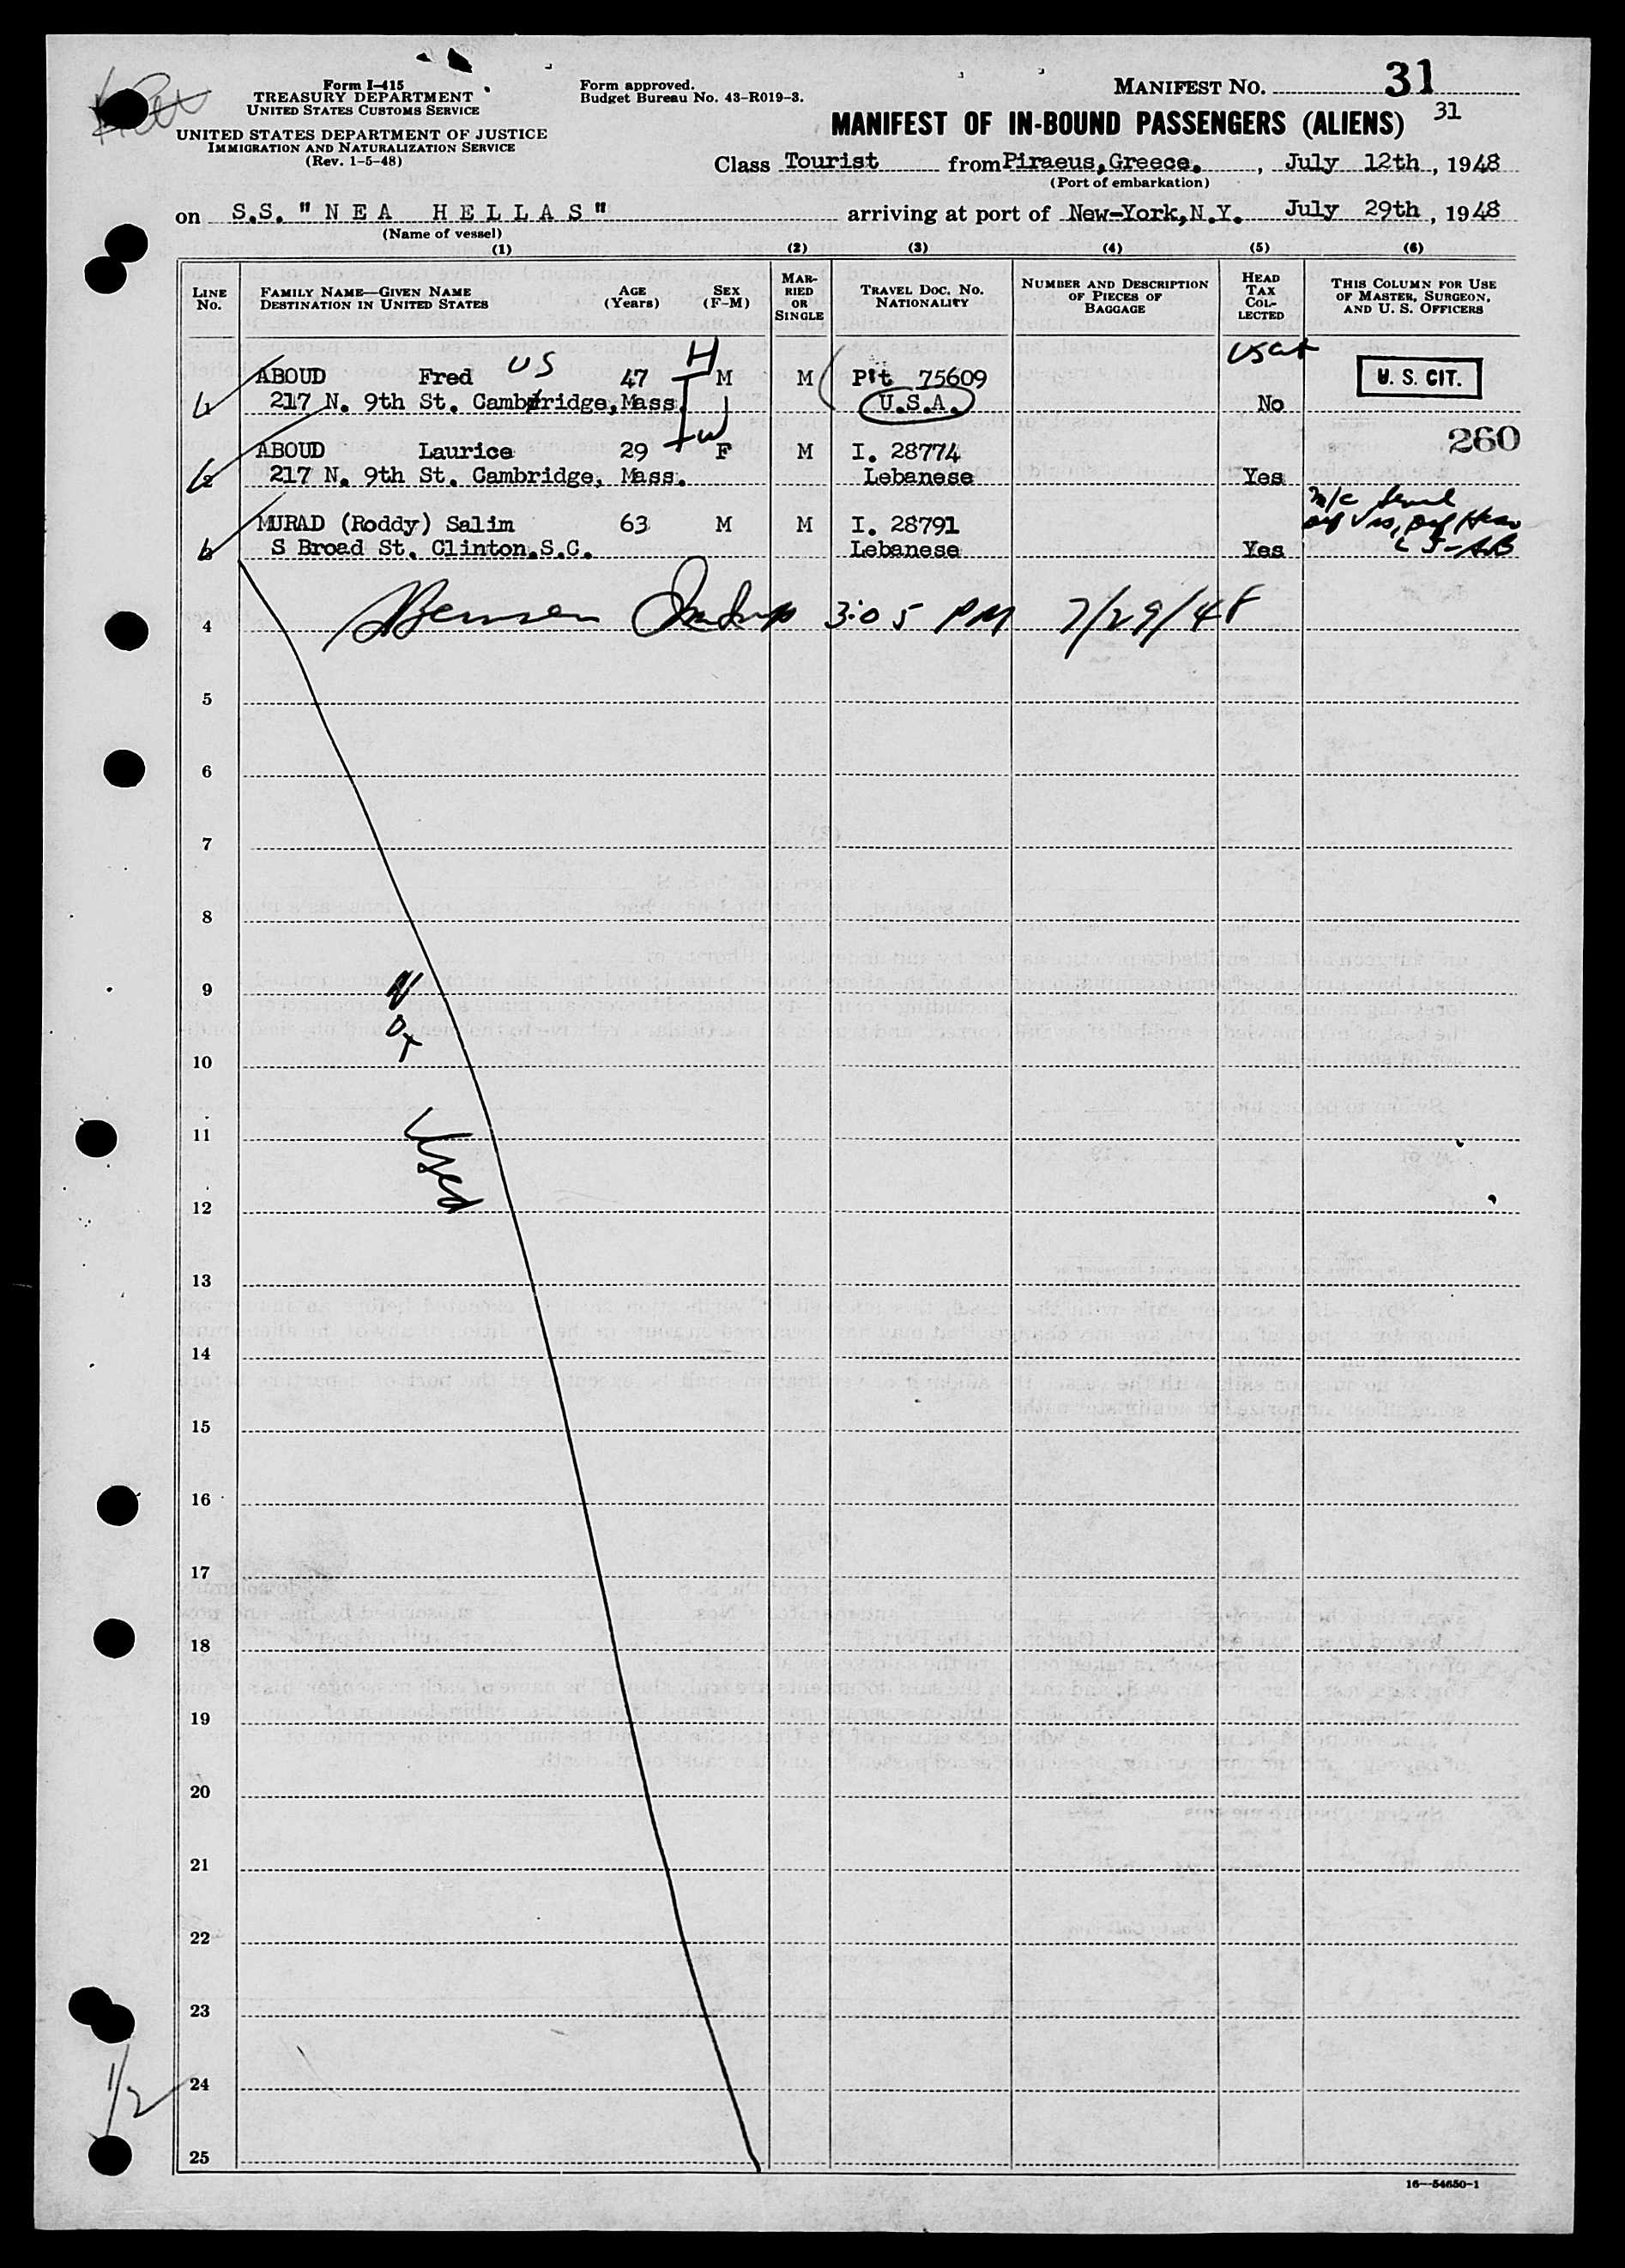 Form I-415
TREASURY DEPARTMENT
UNITED STATES CUSTOMS SERVICE
UNITED STATES DEPARTMENT OF JUSTICE
IMMIGRATION AND NATURALIZATION SERVICE
(Rev. 1-5-48)
Form approved.
Budget Bureau No. 43-R019-3.
MANIFEST No. 31
31
MANIFEST OF IN-BOUND PASSENGERS (ALIENS)
Class Tourist from Piraeus, Greece. , July 12th , 1948
(Port of embarkation)
on S.S. "NEA HELLAS" arriving at port of New-York, N.Y. July 29th , 1948
(Name of vessel)
(1) (2) (3) (4) (5) (6)
LINE No.
FAMILY NAME—GIVEN NAME
DESTINATION IN UNITED STATES
AGE (Years)
SEX (F-M)
MARRIED OR SINGLE
TRAVEL DOC. NO.
NATIONALITY
NUMBER AND DESCRIPTION OF PIECES OF BAGGAGE
HEAD TAX COLLECTED
THIS COLUMN FOR USE OF MASTER, SURGEON, AND U. S. OFFICERS
US H
1 ABOUD Fred 47 M M 75609 U. S. CIT.
217 N. 9th St. Cambridge, Mass. U.S.A. No
W
260
2 ABOUD Laurice 29 F M I. 28774
217 N. 9th St. Cambridge, Mass. Lebanese Yes
3 MURAD (Roddy) Salim 63 M M I. 28791
S Broad St. Clinton, S.C. Lebanese Yes
3:05 PM 7/29/48
4
5
6
7
8
9
Not
10
11
Used
12
13
14
15
16
17
18
19
20
21
22
23
24
1/2
25
16—54650-1